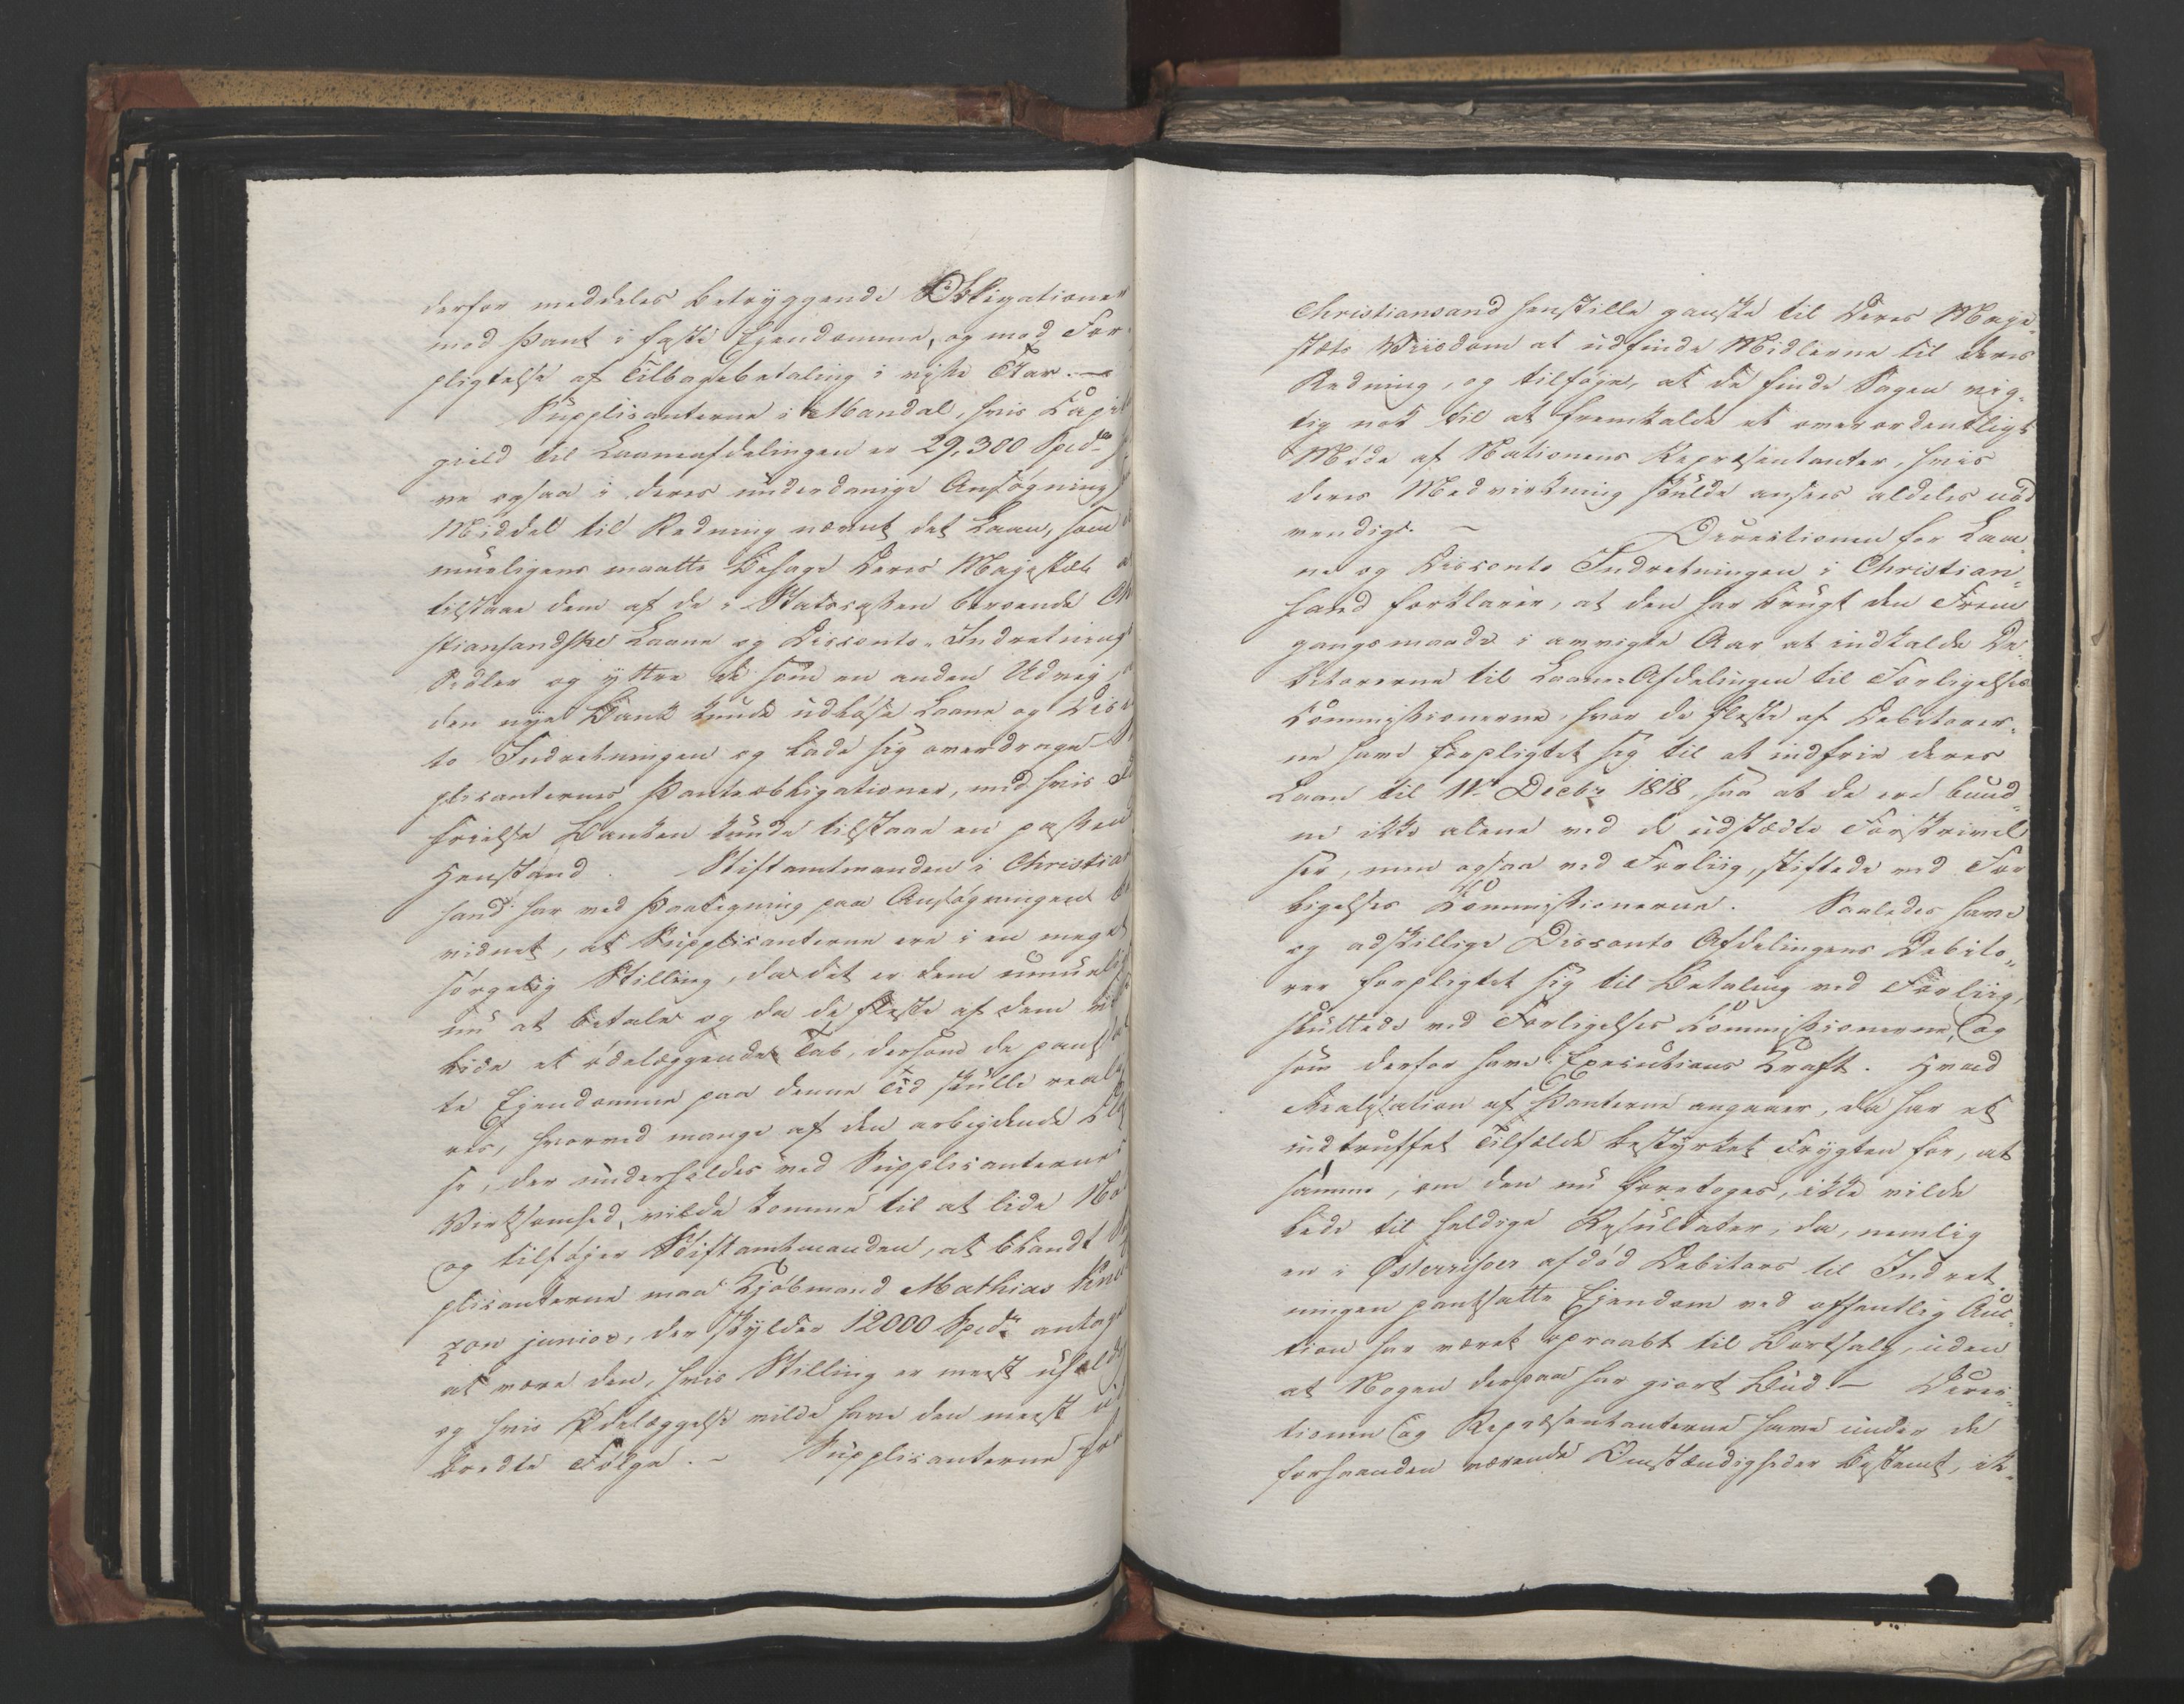 derfor meddeles betryggende Obligationer
mod Pant i faste Ejendomme, og med For-
pligtelse af Tilbagebetaling i visse Aar. —
Supplicanterne i Mandal, hvis
gield til Laaneafdelingen er 29,300 Spd.
ve ogsaa i deres underdanige Ansøgning
Middel til Redning nævnt det Laan, som
mueligens maatte behage Deres Majestæt
tilstaae dem af de i Statscassen beroende
stiansandske Laane og Disconto-Indretnings
Sedler og yttre de som en anden Udvej,
den nye Bank kunde udløse Laane og Dis
to Indretningen og lade sig overdrage
plicanternes Panteobligationer, med hvis
frielse Banken kunde tilstaae en passen
Henstand. Stiftamtmanden i Christian
sand har ved Paategning paa Ansøgningen
vidnet, at Supplicanterne ere i en meget
sørgelig Stilling, da det er dem umueligt
nu at betale og da de fleste af dem
lide et ødelæggende Tab, dersom de pant
te Ejendomme paa denne Tid skulle reali
res, hvorved mange af den arbejdende
se, der underholdes ved Supplicanternes
Virksomhed, vilde komme til at lide
og tilføjer Stiftamtmanden, at blandt
plicanterne maa Kjøbmand Mathias
zon junior, der skylder 12000 Spd. antages
at være den, hvis Stilling er meest uheldig
og hvis Ødelæggelse vilde have den meest
bredte Følge. — Supplicanterne
Christiansand henstille ganske til Deres Maje-
stæts Viisdom at udfinde Midlerne til deres
Redning, og tilføje, at de finde Sagen vig-
tig nok til at fremkalde et overordentligt
Møde af Nationens Repræsentanter, hvis
deres Medvirkning skulde ansees aldeles nød
vendigt. — Directionen for Laa-
ne og Disconto Indretningen i Christian-
sand forklarer, at den har brugt den Frem
gangsmaade i avvigte Aar at indkalde De-
bitorerne til Laane-Afdelingen til Forligelses
Commissionerne, hvor de fleste af Debitorer-
ne have forpligtet sig til at indfrie deres
Laan til 11te Decbr 1818, saa at de ere bund-
ne ikke alene ved de udstædte Forskrivel
ser, men ogsaa ved Forliig, stiftede ved For
ligelses Commissionerne. Saaledes have
og adskillige Disconto Afdelingens Debito-
rer forpligtet sig til Betaling ved Forliig,
sluttede ved Forligelses Commissionerne, og
som derfor have Executions Kraft. Hvad
Realisation af Panterne angaaer, da har et
indtruffet Tilfælde bestyrket Frygten for, at
samme, om den nu foretoges, ikke vilde
lede til heldige Resultater, da, nemlig
en i Østerrisøer afdød Debitors til Indret-
ningen pantsatte Ejendom ved offentlig Auc-
tion har været opraabt til Bortsalg, uden
at Nogen derpaa har giort Bud. — Direc-
tionen og Repræsentanterne have under de
forhaanden værende Omstændigheder bestemt, ik-